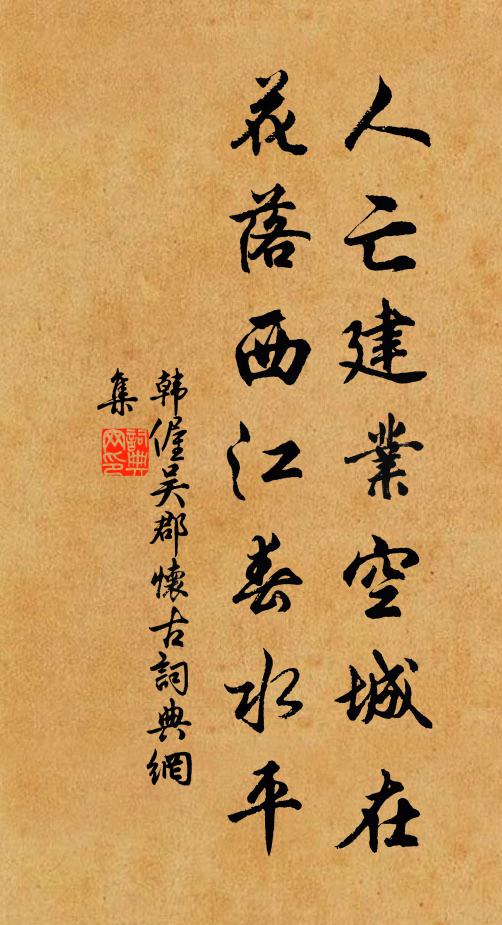 人亡建業空城在
花落西江春水平
韩偓吴郡懷古詞典網
集
詞典网印